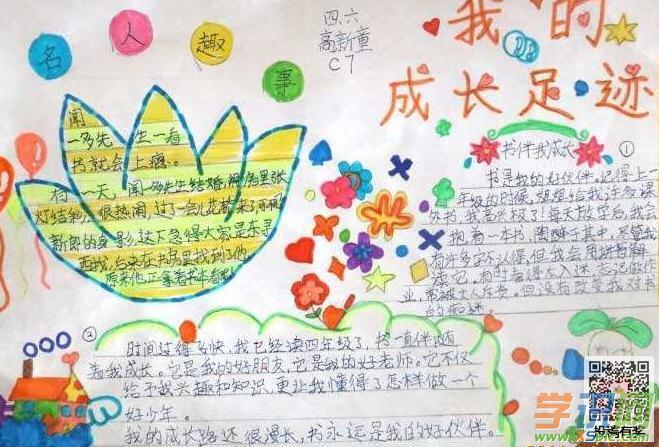 名人趣事
四、六
高新童
C7
我的
成长足迹
闻
一多先生一看
书就会上瘾。
有一天,闻一多先生结婚,
灯结彩,很热闹,过了一会儿花轿来了,可
新郎的身影,这下急得大家是东寻
西找,后来在书房里找到了他,
原来他正拿着
书伴我成长
①
书是我的好伙伴。记得上一
年级的时候,妈妈给我
外书,我高兴极了!每天放学后,我会
抱着一本书,陶醉
有许多字不认得,但我会用拼音
读记。有时看得太入迷,忘记做作
业,常被大人
的痴迷。
②
时间过得多快,我已经读四年级了,书一直伴随
着我成长。它是我的好朋友,它是我的好老师。它不仅
给予我兴趣和知识,更让我懂得了怎样做一个
好少年。
我的成长路还很漫长,书永远是我的好伙伴。
投稿有奖